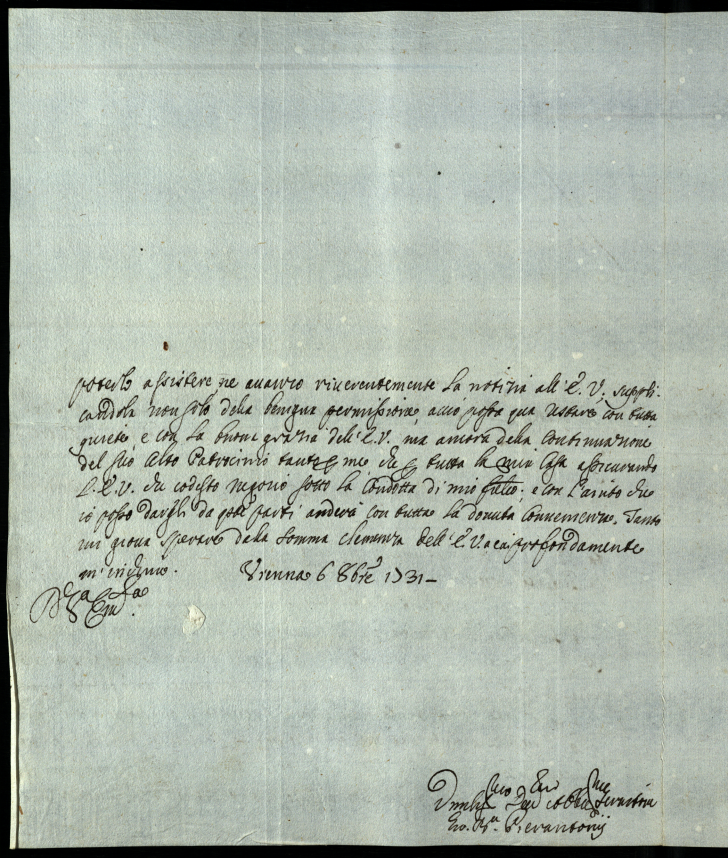 poterlo assistere ne avanzo riverentemente la notizia all'E. V. suppli:
candola non solo della benigna permissione, acciò possa qua restare con tutta
quiete, e con la buona grazia dell'E.V., ma ancora della Continuazione
del suo Alto Patrocinio tanto per me che per tutta la mia Casa assicurando
L'E.V. che codesto negozio sotto la Condotta di mio figlio, e con l'aiuto che
io posso dargli da queste parti anderà con tutta la dovuta Convenienza. Tanto
mi giova sperare dalla somma clemenza dell'E.V. a cui profondamente
m'inchino. Vienna 6 8bre 1731 –
D. V.ra Ecc.za
Umil.mo Dev.mo ed Obbl.mo Servitore
Gio. Ba. Pierantonij